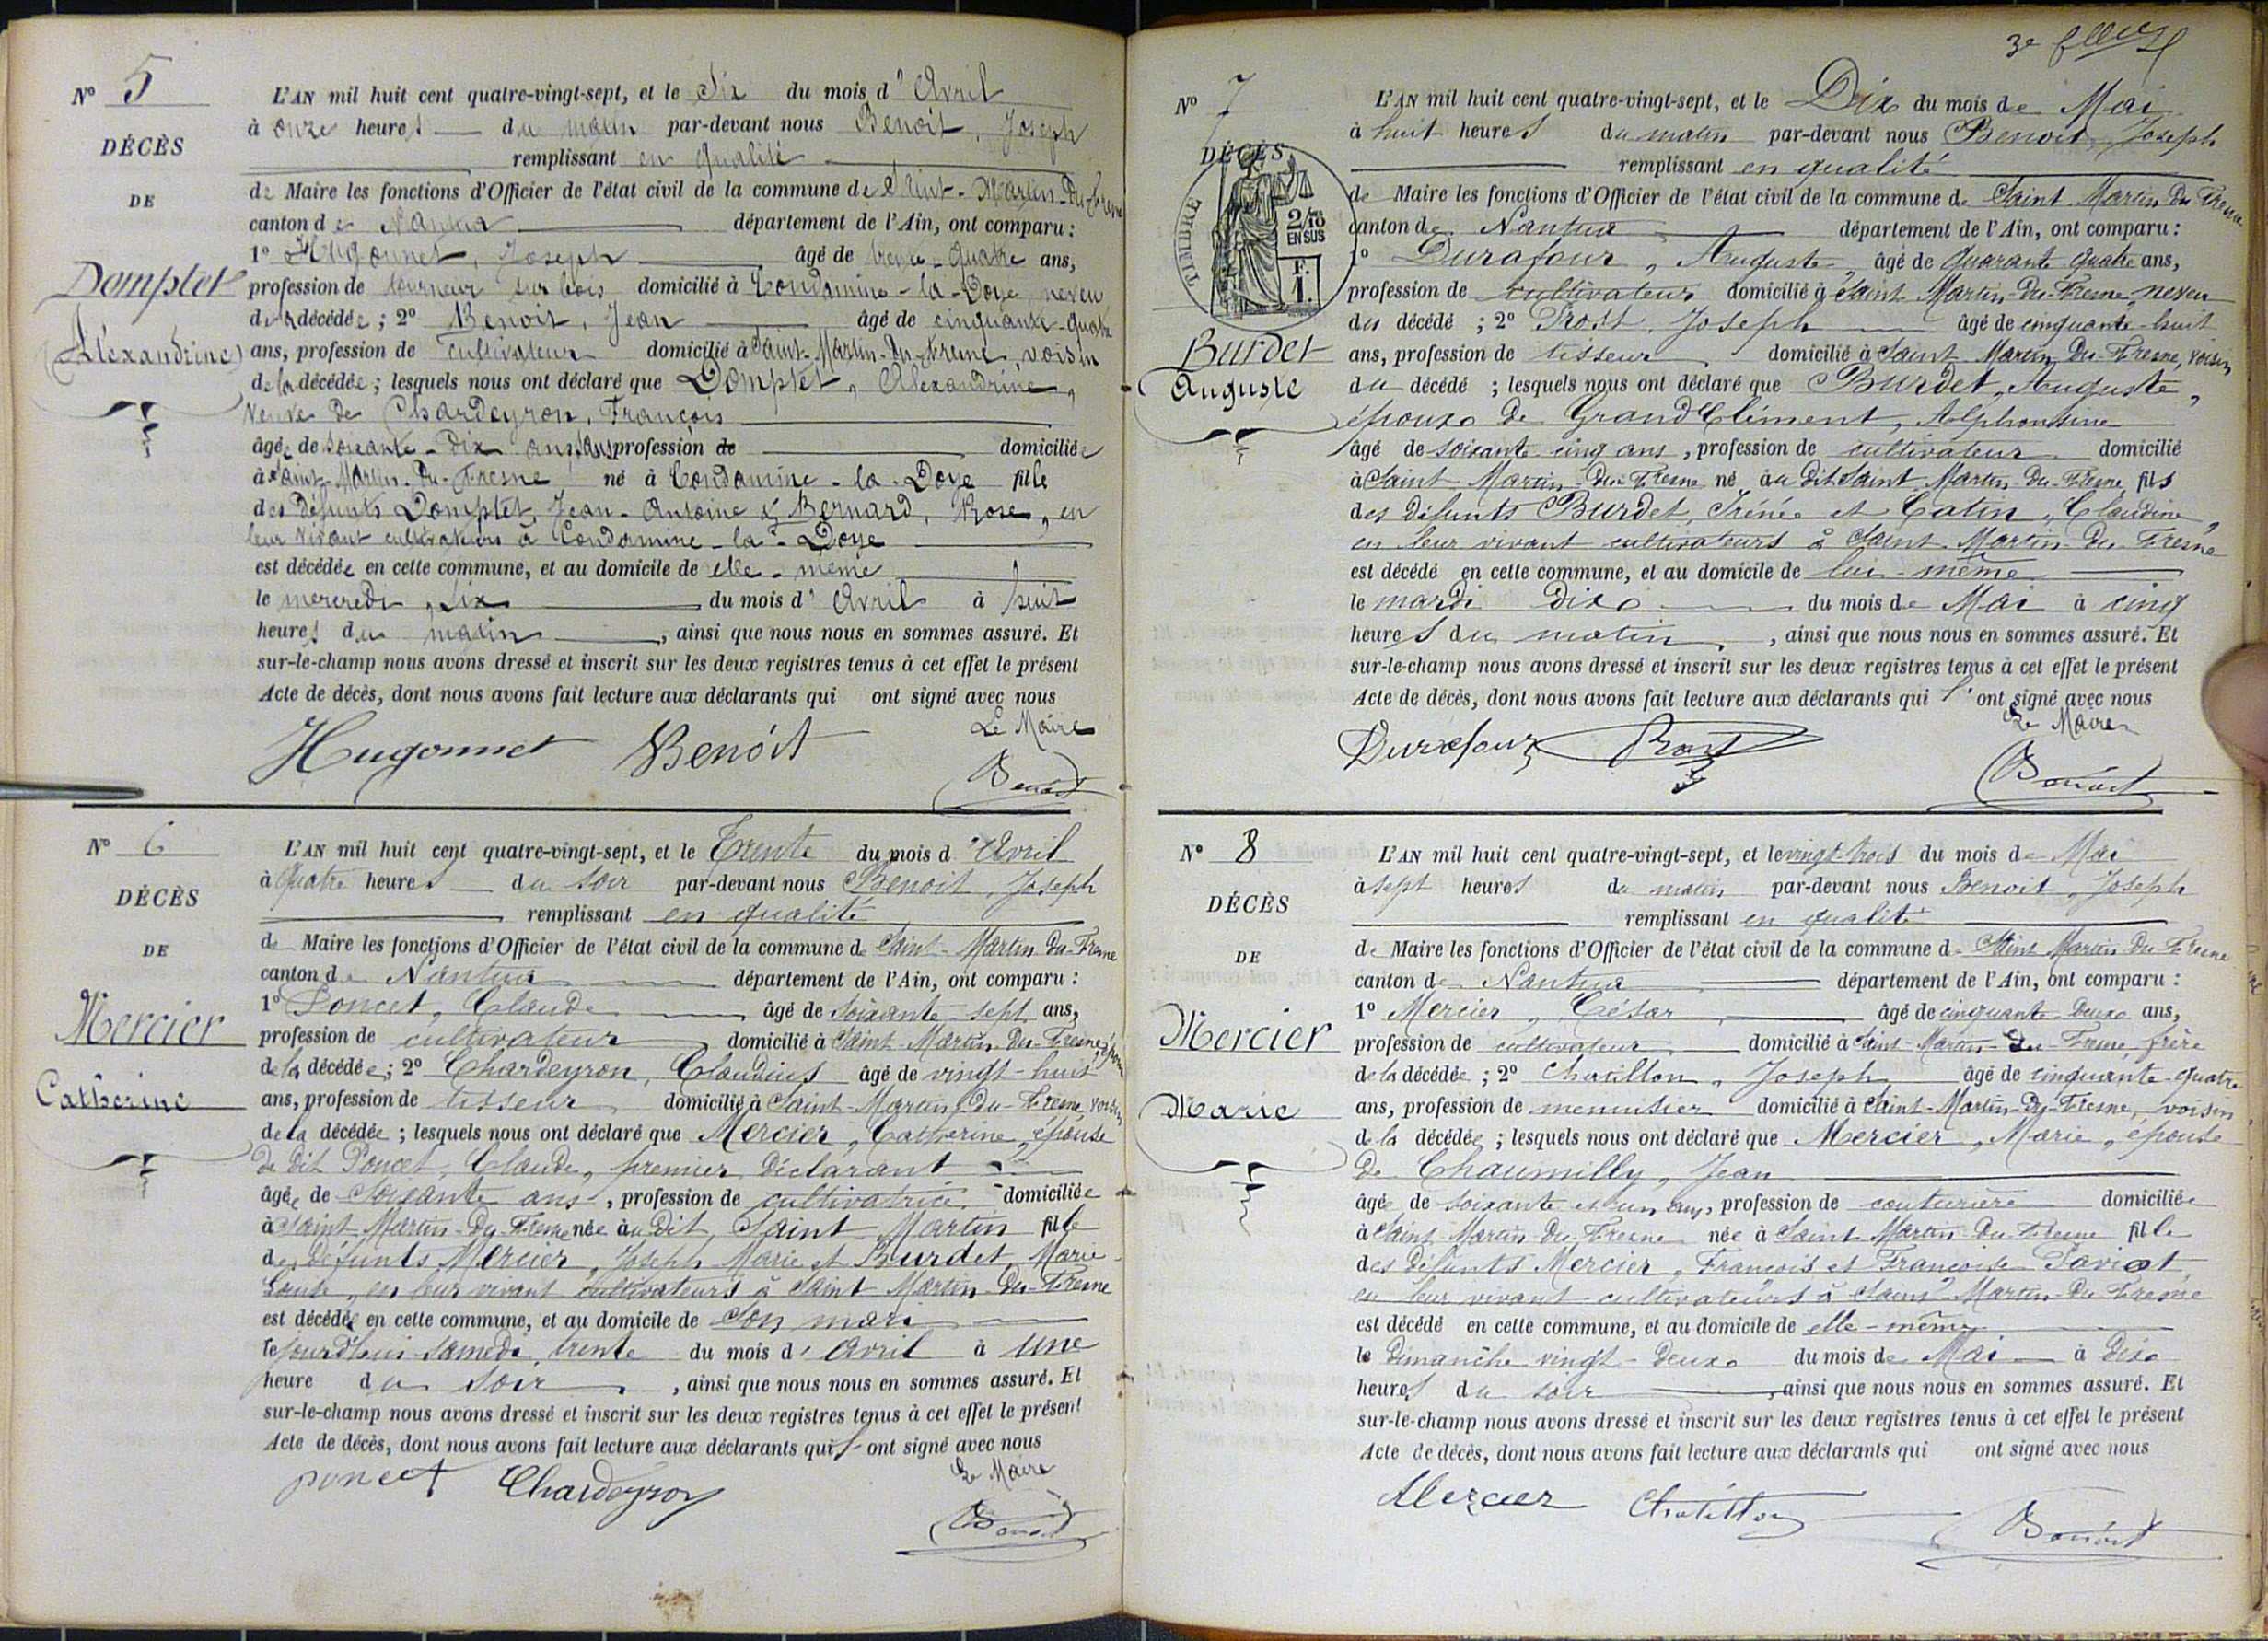 N° 5
DÉCÈS
DE
Domptet
(Alexandrine)
L'AN mil huit cent quatre-vingt-sept, et le Six du mois d'Avril
à onze heures du matin par-devant nous Benoit, Joseph
remplissant en qualité
de Maire les fonctions d'Officier de l'état civil de la commune de Saint-Martin-Du-Fresne
canton de Nantua département de l'Ain, ont comparu :
1° Hugonnet, Joseph âgé de trente-quatre ans,
profession de tourneur sur bois domicilié à Condamine-la-Doye, neveu
de la décédée ; 2° Benoit, Jean âgé de cinquante-quatre
ans, profession de cultivateur domicilié à Saint-Martin-Du-Fresne, voisin
de la décédée ; lesquels nous ont déclaré que Domptet, Alexandrine,
Veuve de Chardeyron, François
âgée de soixante-dix ans, sans profession de domiciliée
à Saint-Martin-Du-Fresne né à Condamine-la-Doye fille
des défunts Domptet, Jean-Antoine & Bernard, Rose, en
leur vivant cultivateurs à Condamine-la-Doye
est décédée en cette commune, et au domicile de elle-même
le mercredi, six du mois d'Avril à huit
heures du matin, ainsi que nous nous en sommes assuré. Et
sur-le-champ nous avons dressé et inscrit sur les deux registres tenus à cet effet le présent
Acte de décès, dont nous avons fait lecture aux déclarants qui ont signé avec nous
Le Maire
Hugonnet Benoit Benoit
N° 6
DÉCÈS
DE
Mercier
Catherine
L'AN mil huit cent quatre-vingt-sept, et le Trente du mois d'Avril
à Quatre heures du soir par-devant nous Benoit, Joseph
remplissant en qualité
de Maire les fonctions d'Officier de l'état civil de la commune de Saint-Martin-Du-Fresne
canton de Nantua département de l'Ain, ont comparu :
1° Poncet, Claude âgé de soixante-sept ans,
profession de cultivateur domicilié à Saint-Martin-Du-Fresne, époux
de la décédée ; 2° Chardeyron, Claudius âgé de vingt-huit
ans, profession de tisseur domicilié à Saint-Martin-Du-Fresne, voisin
de la décédée ; lesquels nous ont déclaré que Mercier, Catherine, épouse
de dit Poncet, Claude, premier déclarant
âgée de soixante ans, profession de cultivatrice domiciliée
à Saint Martin-Du-Fresne née au dit Saint Martin fille
des défunts Mercier, Joseph Marie et Burdet, Marie
Louise, en leur vivant cultivateurs à Saint Martin-Du-Fresne
est décédée en cette commune, et au domicile de son mari
le jourd'hui samedi, trente du mois d'Avril à une
heure du soir, ainsi que nous nous en sommes assuré. Et
sur-le-champ nous avons dressé et inscrit sur les deux registres tenus à cet effet le présent
Acte de décès, dont nous avons fait lecture aux déclarants qui l'ont signé avec nous
Le Maire
poncet Chardeyron Benoit
3e
N° 7
DÉCÈS
TIMBRE
2/10 EN SUS
F. 1.
Burdet
Auguste
L'AN mil huit cent quatre-vingt-sept, et le Dix du mois de Mai
à huit heures du matin par-devant nous Benoit, Joseph
remplissant en qualité
de Maire les fonctions d'Officier de l'état civil de la commune de Saint Martin Du Fresne
canton de Nantua département de l'Ain, ont comparu :
1° Durafour, Auguste, âgé de Quarante quatre ans,
profession de cultivateur domicilié à Saint Martin-Du-Fresne, neveu
du décédé ; 2° Prost, Joseph âgé de cinquante-huit
ans, profession de tisseur domicilié à Saint Martin Du-Fresne, voisin
du décédé ; lesquels nous ont déclaré que Burdet, Auguste,
époux de Grand Clément, Alphonsine
âgé de soixante cinq ans, profession de cultivateur domicilié
à Saint Martin-Du-Fresne né au dit Saint Martin-Du-Fresne fils
des défunts Burdet, Irénée et Catin, Claudine,
en leur vivant cultivateurs à Saint-Martin-Du-Fresne
est décédé en cette commune, et au domicile de lui-même
le mardi dix du mois de Mai à cinq
heures du matin, ainsi que nous nous en sommes assuré. Et
sur-le-champ nous avons dressé et inscrit sur les deux registres tenus à cet effet le présent
Acte de décès, dont nous avons fait lecture aux déclarants qui l'ont signé avec nous
Le Maire
Durafour Prost Benoit
N° 8
DÉCÈS
DE
Mercier
Marie
L'AN mil huit cent quatre-vingt-sept, et le vingt-trois du mois de Mai
à sept heures du matin par-devant nous Benoit, Joseph
remplissant en qualité
de Maire les fonctions d'Officier de l'état civil de la commune de Saint Martin Du Fresne
canton de Nantua département de l'Ain, ont comparu :
1° Mercier, César âgé de cinquante-deux ans,
profession de cultivateur domicilié à Saint-Martin-Du-Fresne, frère
de la décédée ; 2° Chatillon, Joseph âgé de cinquante-quatre
ans, profession de menuisier domicilié à Saint-Martin-Du-Fresne, voisin
de la décédée ; lesquels nous ont déclaré que Mercier, Marie, épouse
de Chaumilly, Jean
âgée de soixante et un ans, profession de couturière domiciliée
à Saint Martin-Du-Fresne née à Saint Martin Du Fresne fille
des défunts Mercier, François et Françoise Paviot,
en leur vivant cultivateurs à Saint Martin-Du-Fresne
est décédé en cette commune, et au domicile de elle-même
le Dimanche vingt-deux du mois de Mai à dix
heures du soir, ainsi que nous nous en sommes assuré. Et
sur-le-champ nous avons dressé et inscrit sur les deux registres tenus à cet effet le présent
Acte de décès, dont nous avons fait lecture aux déclarants qui ont signé avec nous
Mercier Chatillon Benoit